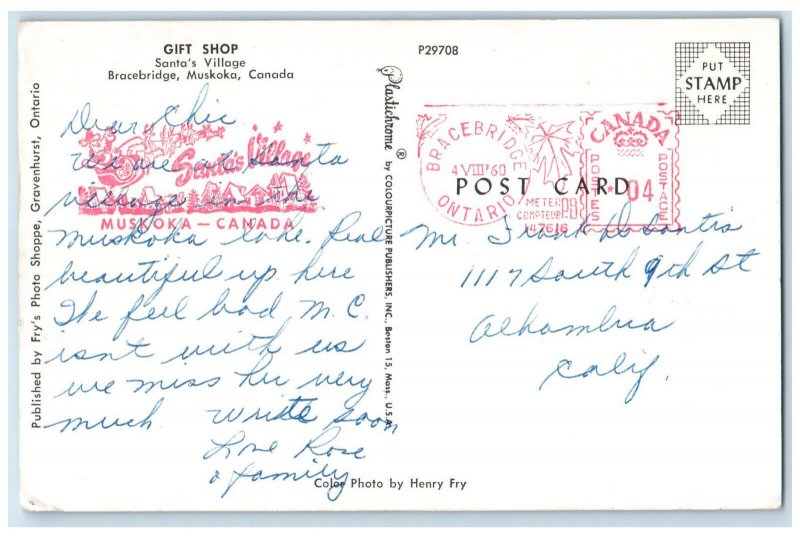 GIFT SHOP
Santa's Village
Bracebridge, Muskoka, Canada
P29708
PUT
STAMP
HERE
Published by Fry's Photo Shoppe, Gravenhurst, Ontario
Plastichrome ® by COLOURPICTURE PUBLISHERS, INC., Boston 15, Mass., U.S.A.
Santa's Village
MUSKOKA — CANADA
BRACEBRIDGE
4 VIII '60
ONTARIO
METER
COMPTEUR
147616
CANADA
POSTES
POSTAGE
04
POST CARD
Dear Chic
We are at Santa
village in the
Muskoka lake. Real
beautiful up here
The feel bad M.C.
isnt with us
we miss her very
much. Write soon
Love Rose
& family
Mr. Frank DeSantis
1117 South 9th St
Alhambra
Calif.
Color Photo by Henry Fry